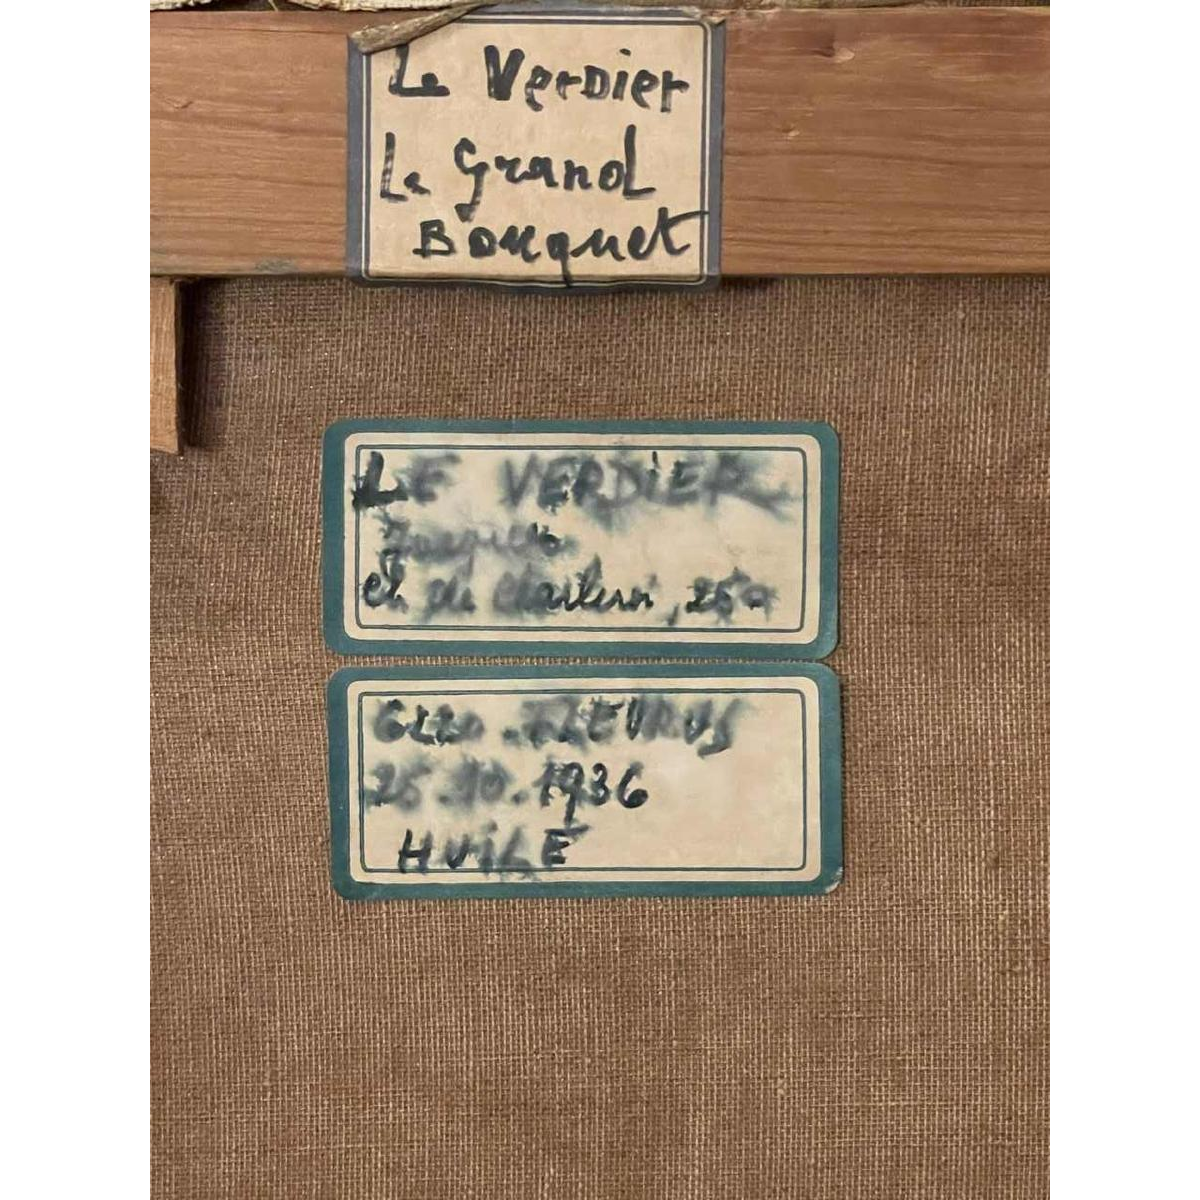 Le Verdier
Le Grand
Bouquet
LE VERDIER
ch de Charleroi, 250
6220 FLEURUS
25.10.1936
HUILE